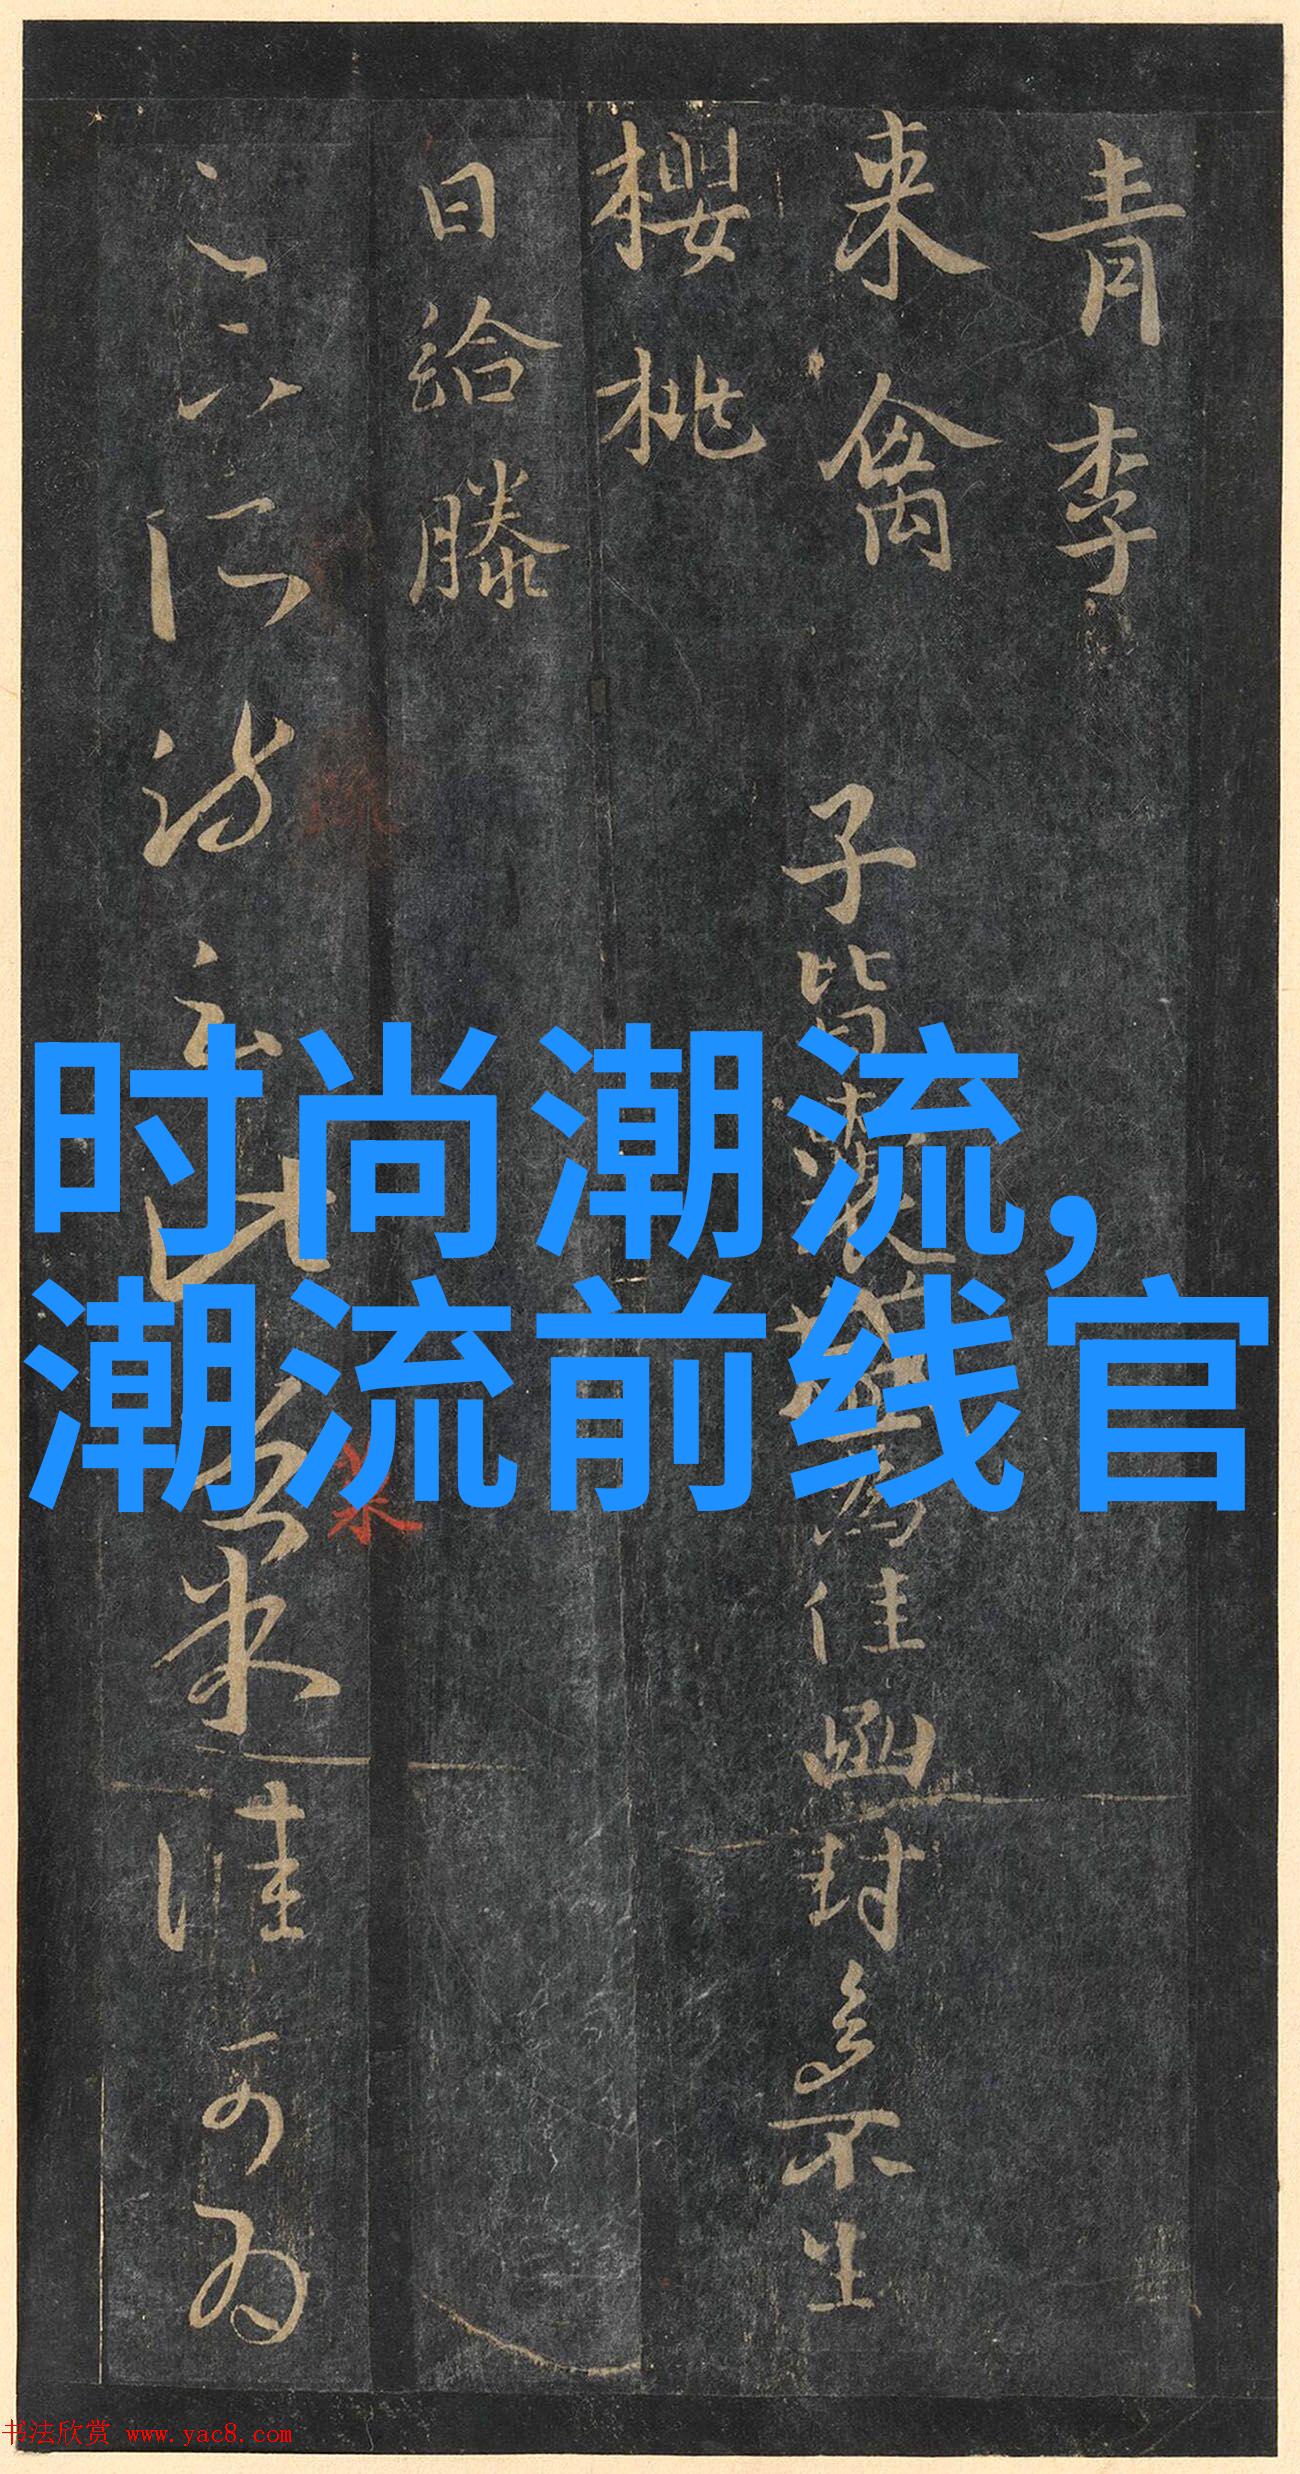 青李
来禽
櫻桃
日給滕
子皆囊盛為佳函封多不生
足下所疏云此菓佳可為
时尚潮流,
潮流前线官
书法欣赏 www.yac8.com